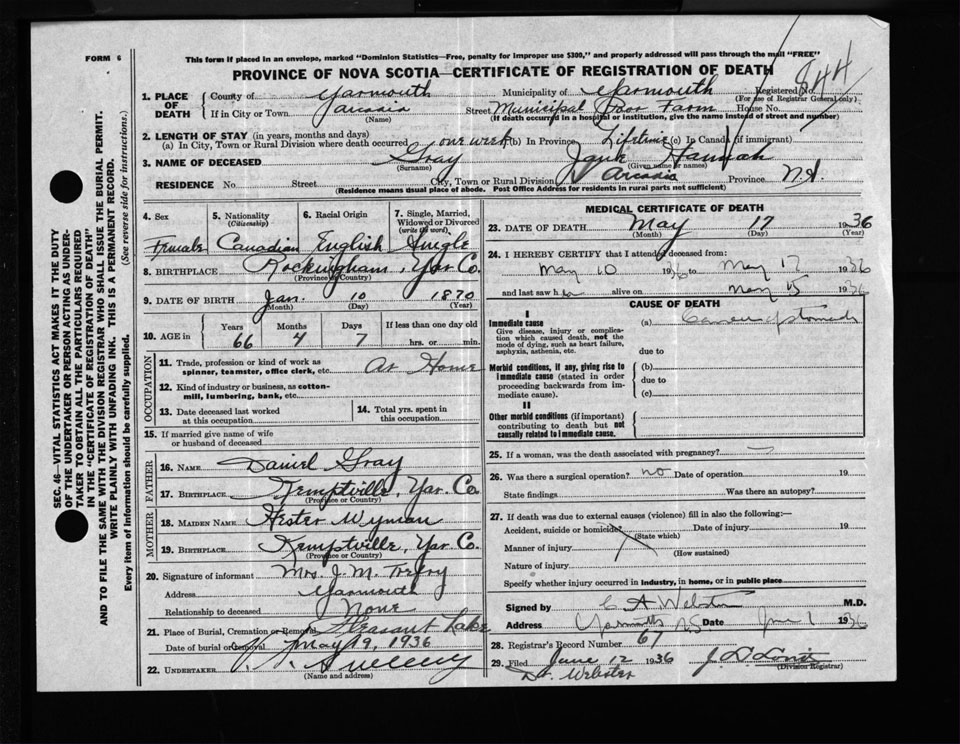 FORM 6
This form if placed in an envelope, marked "Dominion Statistics—Free, penalty for improper use $300," and properly addressed will pass through the mail "FREE"
PROVINCE OF NOVA SCOTIA—CERTIFICATE OF REGISTRATION OF DEATH
844
1. PLACE OF DEATH
County of Yarmouth Municipality of Yarmouth Registered No.
(For use of Registrar General only)
If in City or Town Arcadia (Name) Street Municipal Poor Farm House No.
(If death occurred in a hospital or institution, give the name instead of street and number)
2. LENGTH OF STAY (in years, months and days)
(a) In City, Town or Rural Division where death occurred one week (b) In Province Lifetime (c) In Canada (if immigrant)
3. NAME OF DECEASED Gray (Surname) Hannah (Given name or names)
RESIDENCE No. Street City, Town or Rural Division Arcadia Province N.S.
(Residence means usual place of abode. Post Office Address for residents in rural parts not sufficient)
4. Sex Female
5. Nationality (Citizenship) Canadian
6. Racial Origin English
7. Single, Married, Widowed or Divorced (write the word) Single
8. BIRTHPLACE Rockingham, Yar Co.
(Province or Country)
9. DATE OF BIRTH Jan. 10 1870
(Month) (Day) (Year)
10. AGE in Years 66 Months 4 Days 7 If less than one day old hrs. or min.
OCCUPATION
11. Trade, profession or kind of work as spinner, teamster, office clerk, etc. At Home
12. Kind of industry or business, as cotton-mill, lumbering, bank, etc.
13. Date deceased last worked at this occupation
14. Total yrs. spent in this occupation
15. If married give name of wife or husband of deceased
FATHER
16. NAME Daniel Gray
17. BIRTHPLACE Kemptville, Yar. Co.
(Province or Country)
MOTHER
18. MAIDEN NAME Hester Wyman
19. BIRTHPLACE Kemptville, Yar Co.
(Province or Country)
20. Signature of informant Mrs. J. M. Trefry
Address Yarmouth
Relationship to deceased None
21. Place of Burial, Cremation or Removal Pleasant Lake
Date of burial or removal May 19, 1936
22. UNDERTAKER Sweeny
(Name and address)
MEDICAL CERTIFICATE OF DEATH
23. DATE OF DEATH May 17 1936
(Month) (Day) (Year)
24. I HEREBY CERTIFY that I attended deceased from:
May 10 1936 to May 17 1936
and last saw h alive on May 15 1936
CAUSE OF DEATH
I
Immediate cause
Give disease, injury or complication which caused death, not the mode of dying, such as heart failure, asphyxia, asthenia, etc.
(a) Cancer of stomach
due to
Morbid conditions, if any, giving rise to immediate cause (stated in order proceeding backwards from immediate cause).
(b)
due to
(c)
II
Other morbid conditions (if important) contributing to death but not causally related to immediate cause.
25. If a woman, was the death associated with pregnancy?
26. Was there a surgical operation? no Date of operation 19
State findings Was there an autopsy?
27. If death was due to external causes (violence) fill in also the following:—
Accident, suicide or homicide? Date of injury 19
(State which)
Manner of injury
(How sustained)
Nature of injury
Specify whether injury occurred in industry, in home, or in public place
Signed by C A Webster M.D.
Address Yarmouth NS Date June 1 1936
28. Registrar's Record Number 67
29. Filed June 12 1936
(Division Registrar)
Dr. Webster
SEC. 46—VITAL STATISTICS ACT MAKES IT THE DUTY
OF THE UNDERTAKER OR PERSON ACTING AS UNDER-
TAKER TO OBTAIN ALL THE PARTICULARS REQUIRED
IN THE "CERTIFICATE OF REGISTRATION OF DEATH"
AND TO FILE THE SAME WITH THE DIVISION REGISTRAR WHO SHALL ISSUE THE BURIAL PERMIT.
WRITE PLAINLY WITH UNFADING INK. THIS IS A PERMANENT RECORD.
Every item of information should be carefully supplied. (See reverse side for instructions.)